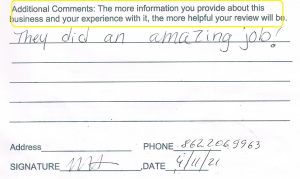 Additional Comments: The more information you provide about this
business and your experience with it, the more helpful your review will be.
They did an amazing job!
Address PHONE 8622069963
SIGNATURE DATE 9/11/21